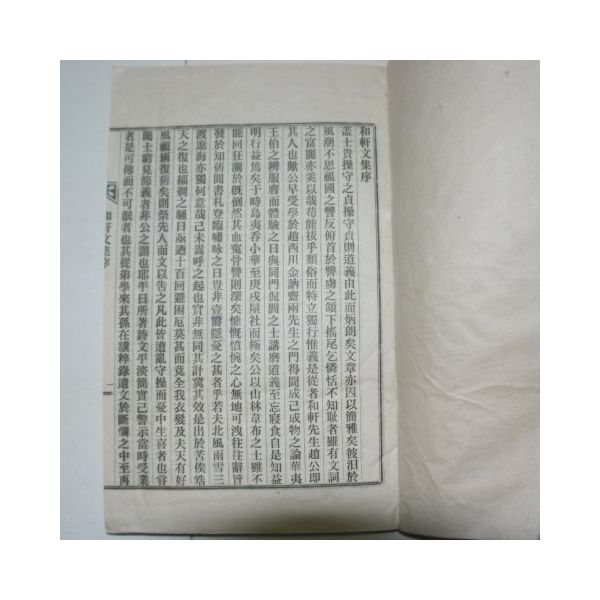 和軒文集序
盖士貴操守之貞操守貞則道義由此而炳朗矣文章亦因以簡雅矣彼汩於
風潮不思祖國之讐反俯首於讐虜之頷下搖尾乞憐恬不知耻者雖有文詞
之富麗亦奚以哉苟能拔乎頹俗而特立獨行惟義是從者和軒先生趙公即
其人也歟公早受學於趙西川金訥齋兩先生之門得聞成己成物之論華夷
王伯之辨服膺而體驗之日與同門侃誾之士講磨道義至忘寢食自是知益
明行益篤矣于時島夷呑小華至庚戌屋社而極矣公以山林韋布之士雖不
能回狂瀾於旣倒然其血寃骨讐則深矣慷慨憤惋之心無地可洩往往辭旨
發於知舊圖書札登臨嘯咏之日豈非壺欝隱憂之甚者乎若夫北風雨雪三
渡遼海亦獨何意哉己未嵩呼之起也實非無同其計冀其效是出於苦俟皓
天之復也緇剃之騷日亟過十百回避困厄莫甚而竟全我衣髮及夫天有好
風祖國復舊矣則祭先人而文以告之凡此皆遭亂守操而憂中生喜者也嘗
聞士窮見節義者非公之謂也耶平日所著詩文平淡簡實己警示當時受業
者是可傳而不可泯者也其從弟學來其孫在瓚粹錄遺文於斷爛之中至再
和軒文集序
一